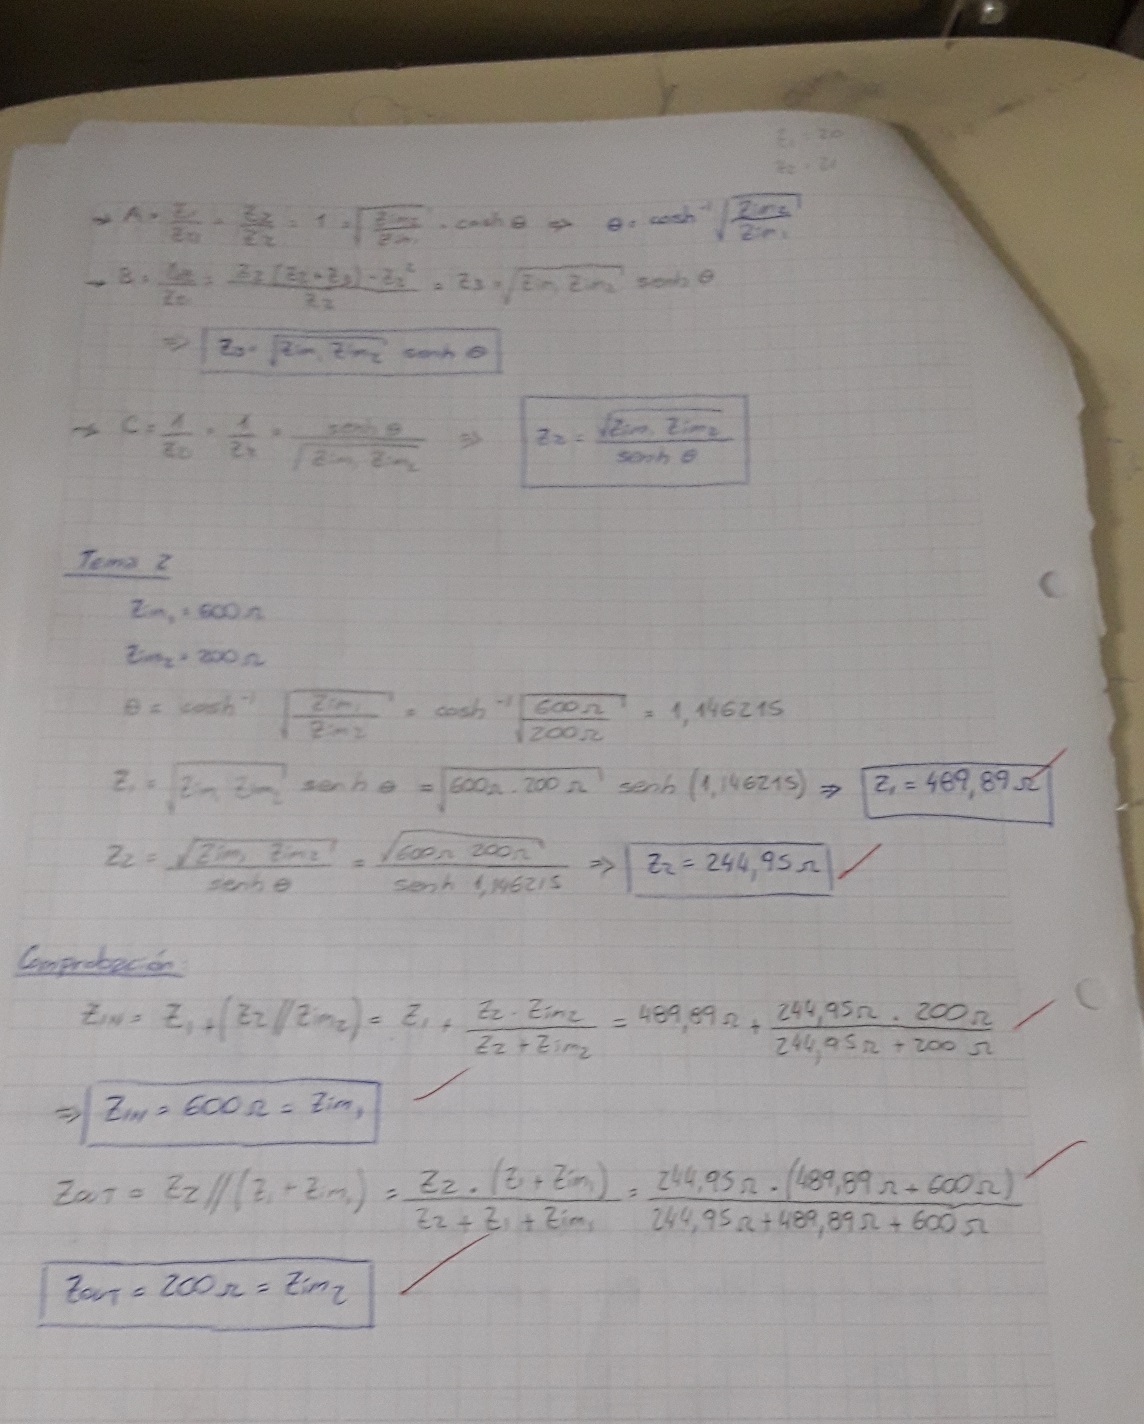 Z₁ = Z0
→ A = Z₁/Z0 = Z₂/Z₂ = 1 = √(Zim₂/Zim₁) · cosh θ ⇒ θ = cosh⁻¹ √(Zim₂/Zim₁)
→ B = = (Z₂(Z₂+Z₃) - Z₂²)/Z₂ = Z₃ = √(Zim₁ Zim₂) senh θ
⇒ Z₃ = √(Zim₁ Zim₂) senh θ
→ C = 1/Z0 = 1/Z₂ = senh θ/√(Zim₁ Zim₂) ⇒ Z₂ = √(Zim₁ Zim₂)/senh θ
Tema 2
Zim₁ = 600Ω
Zim₂ = 200Ω
θ = cosh⁻¹ √(Zim₁/Zim₂) = cosh⁻¹ √(600Ω/200Ω) = 1,146215
Z₁ = √(Zim₁ Zim₂) senh θ = √(600Ω · 200Ω) senh (1,146215) ⇒ Z₁ = 489,89Ω
Z₂ = √(Zim₁ Zim₂)/senh θ = √(600Ω 200Ω)/senh 1,146215 ⇒ Z₂ = 244,95Ω
Comprobación:
ZIN = Z₁ + (Z₂ // Zim₂) = Z₁ + (Z₂ · Zim₂)/(Z₂ + Zim₂) = 489,89Ω + (244,95Ω · 200Ω)/(244,95Ω + 200Ω)
⇒ ZIN = 600Ω = Zim₁
ZOUT = Z₂ // (Z₁ + Zim₁) = (Z₂ · (Z₁ + Zim₁))/(Z₂ + Z₁ + Zim₁) = (244,95Ω · (489,89Ω + 600Ω))/(244,95Ω + 489,89Ω + 600Ω)
ZOUT = 200Ω = Zim₂